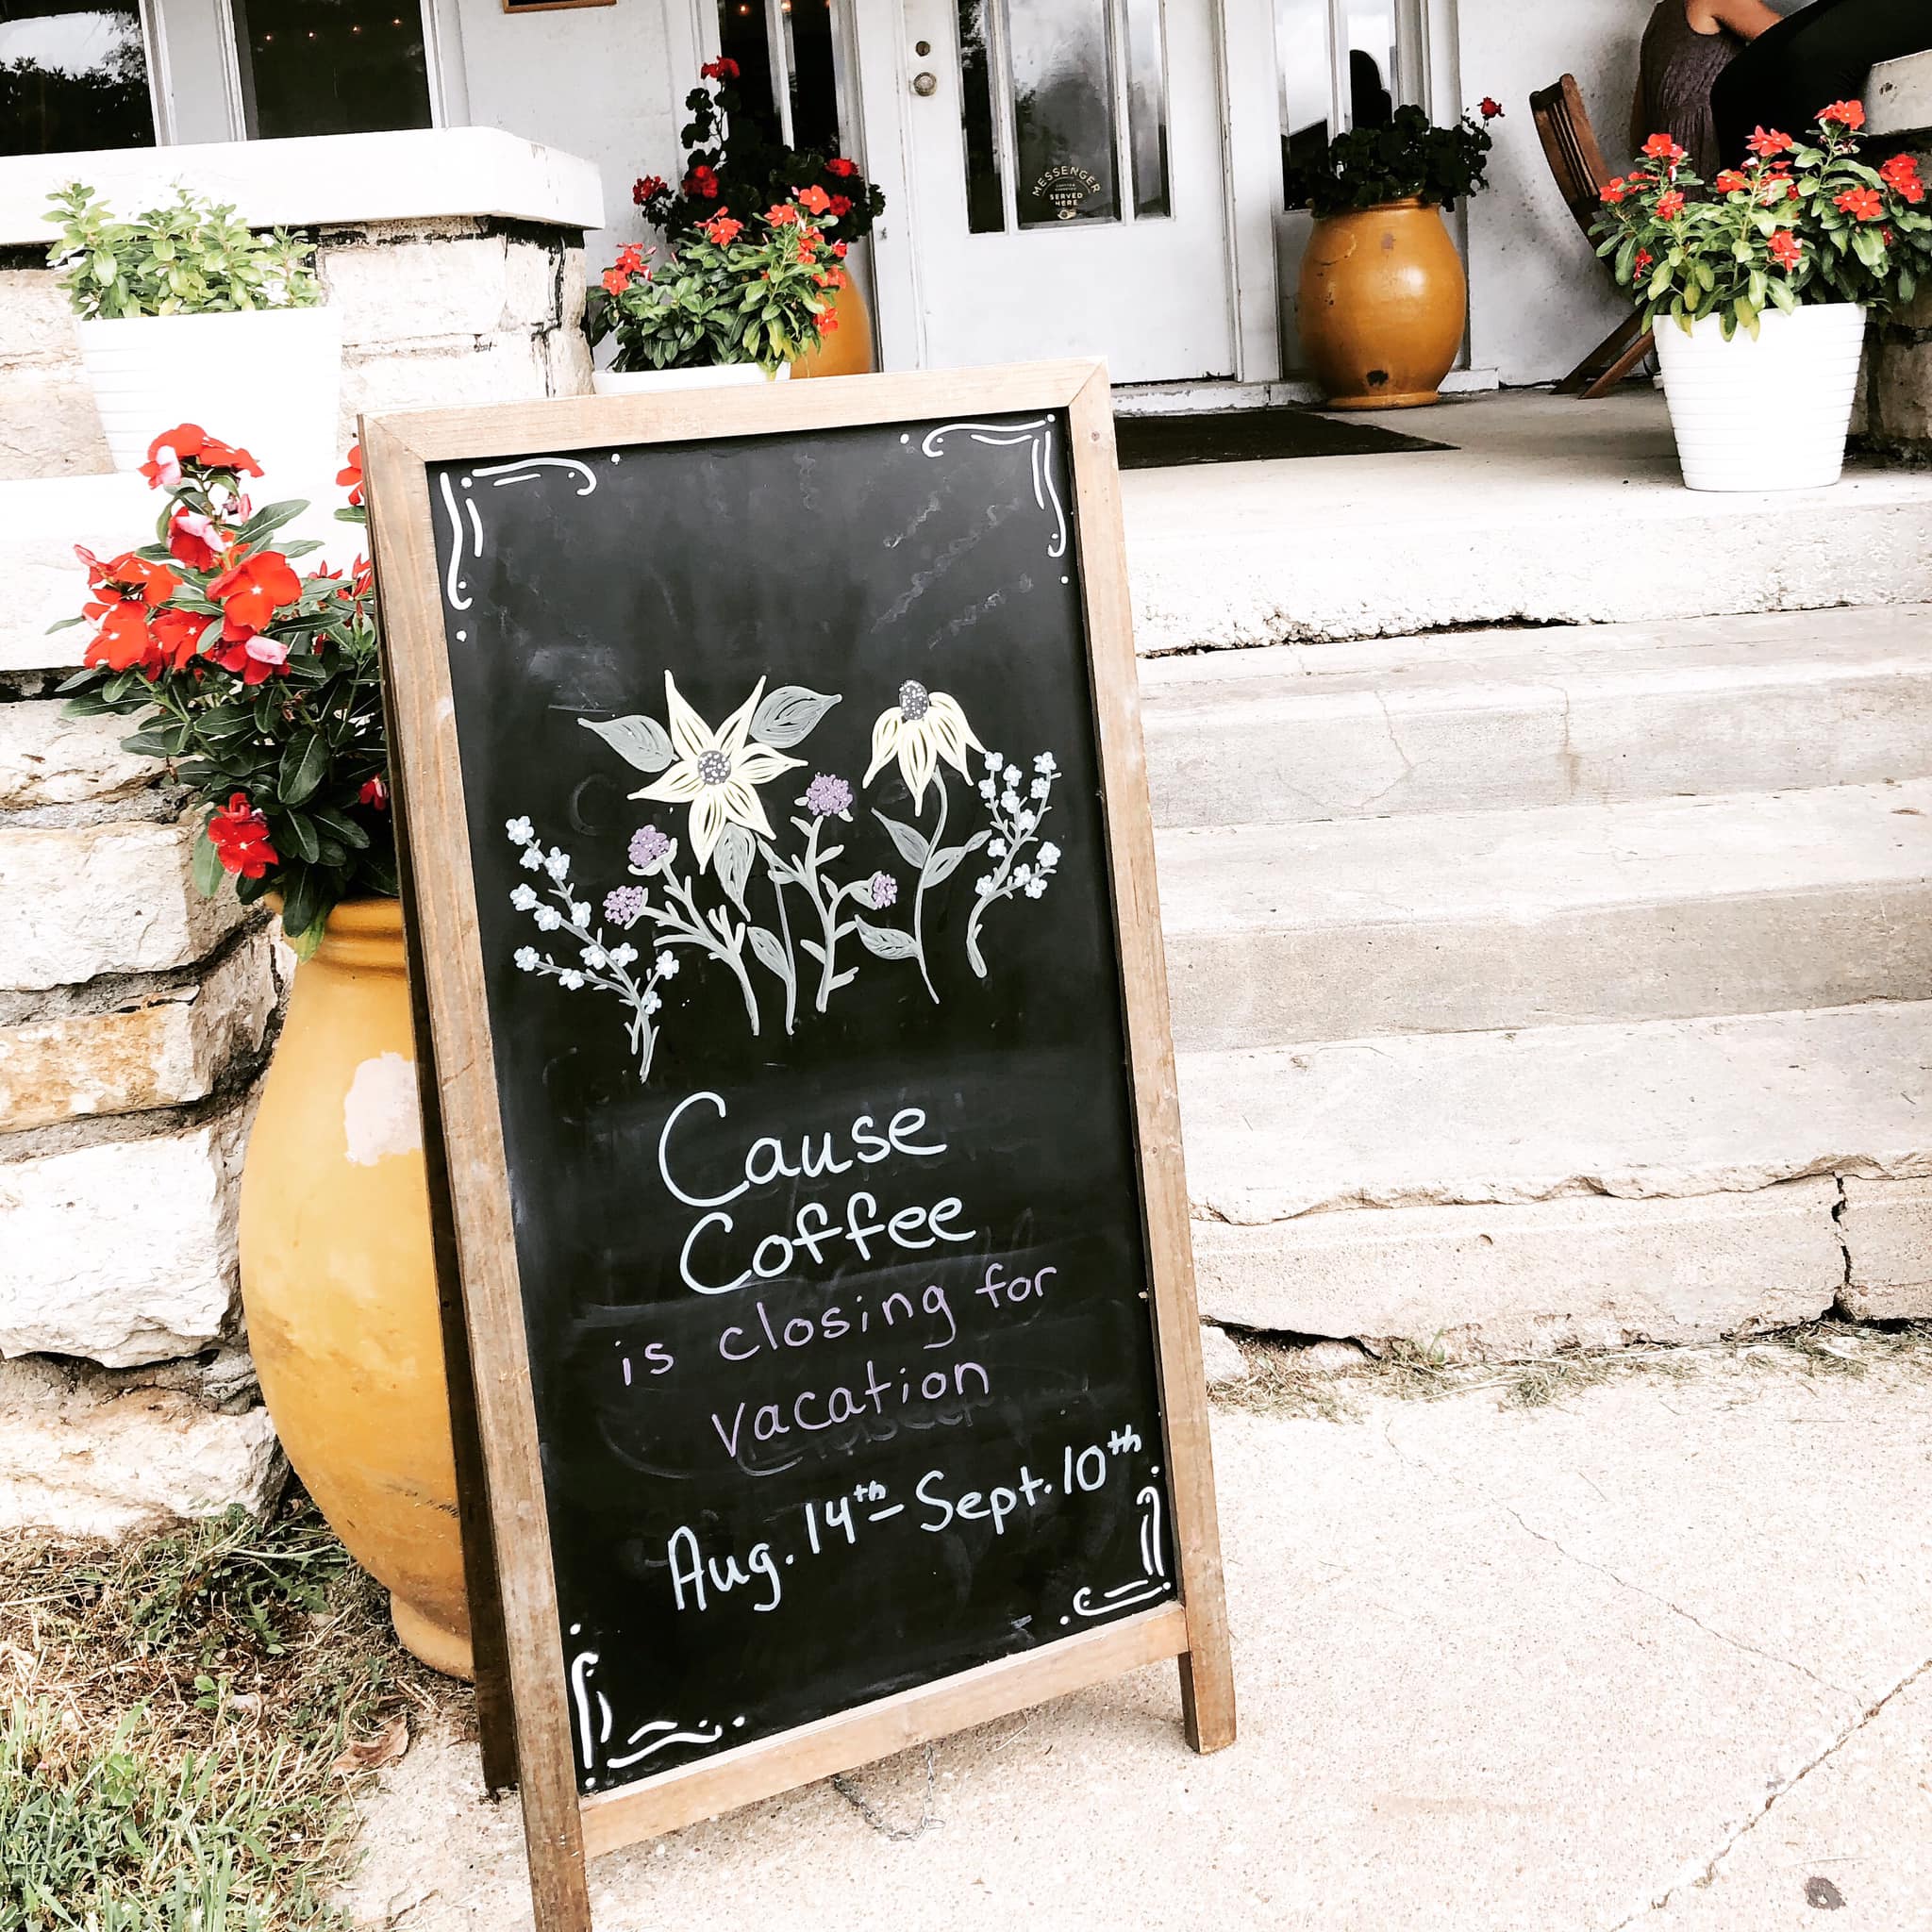 MESSENGER
SERVED
HERE
Cause
Coffee
is closing for
vacation
Aug. 14th - Sept. 10th